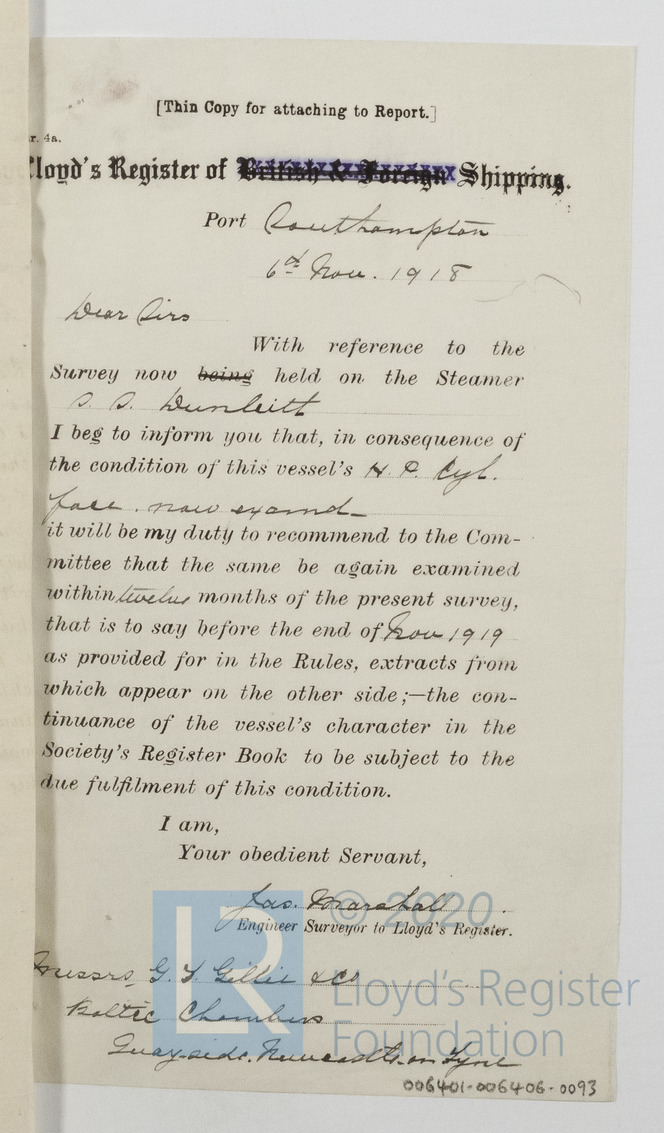 [Thin Copy for attaching to Report.]
r. 4a.
Lloyd's Register of British & Foreign Shipping.
Port Southampton
6th Nov. 1918
Dear Sirs
With reference to the
Survey now being held on the Steamer
S. S. Dunleitt
I beg to inform you that, in consequence of
the condition of this vessel's H. P. Cyl.
face. now examd
it will be my duty to recommend to the Com-
mittee that the same be again examined
within twelve months of the present survey,
that is to say before the end of Nov 1919
as provided for in the Rules, extracts from
which appear on the other side;—the con-
tinuance of the vessel's character in the
Society's Register Book to be subject to the
due fulfilment of this condition.
I am,
Your obedient Servant,
Jas. Marshall
Engineer Surveyor to Lloyd's Register.
Messrs. G. T. Gillie & Co
Baltic Chambers
Quay-side. Newcastle-on-Tyne
LR © 2020
Lloyd's Register
Foundation
006401-006406-0093